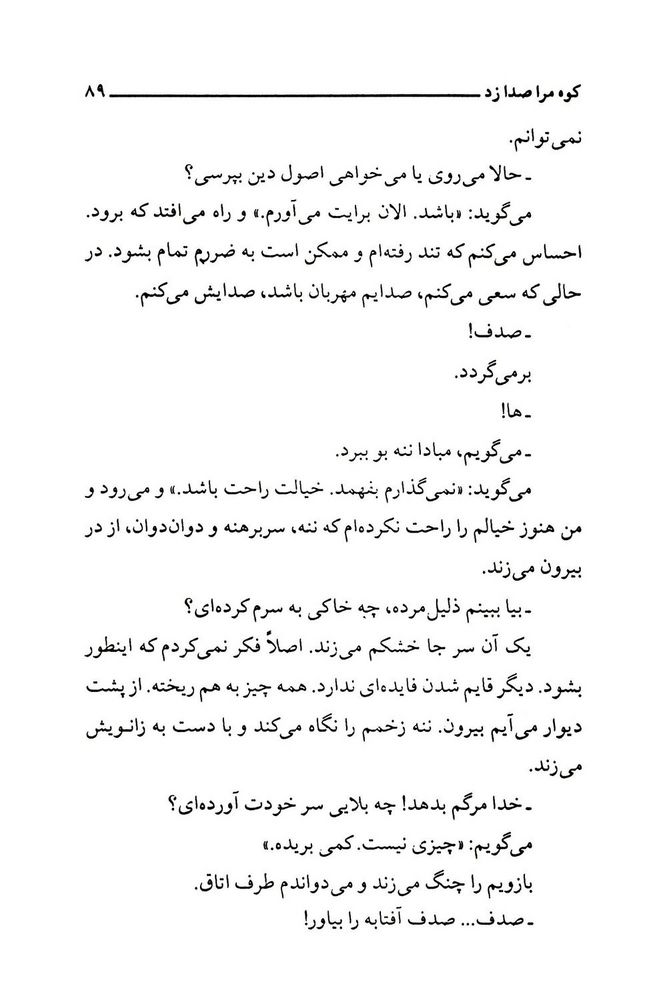 کوه مرا صدا زد ۸۹
نمی‌توانم.
ـ حالا می‌روی یا می‌خواهی اصول دین بپرسی؟
می‌گوید: «باشد. الان برایت می‌آورم.» و راه می‌افتد که برود.
احساس می‌کنم که تند رفته‌ام و ممکن است به ضررم تمام بشود. در
حالی که سعی می‌کنم، صدایم مهربان باشد، صدایش می‌کنم.
ـ صدف!
برمی‌گردد.
ـ ها!
ـ می‌گویم، مبادا ننه بو ببرد.
می‌گوید: «نمی‌گذارم بفهمد. خیالت راحت باشد.» و می‌رود و
من هنوز خیالم را راحت نکرده‌ام که ننه، سربرهنه و دوان‌دوان، از در
بیرون می‌زند.
ـ بیا ببینم ذلیل‌مرده، چه خاکی به سرم کرده‌ای؟
یک آن سر جا خشکم می‌زند. اصلاً فکر نمی‌کردم که اینطور
بشود. دیگر قایم شدن فایده‌ای ندارد. همه چیز به هم ریخته. از پشت
دیوار می‌آیم بیرون. ننه زخمم را نگاه می‌کند و با دست به زانویش
می‌زند.
ـ خدا مرگم بدهد! چه بلایی سر خودت آورده‌ای؟
می‌گویم: «چیزی نیست. کمی بریده.»
بازویم را چنگ می‌زند و می‌دواندم طرف اتاق.
ـ صدف... صدف آفتابه را بیاور!